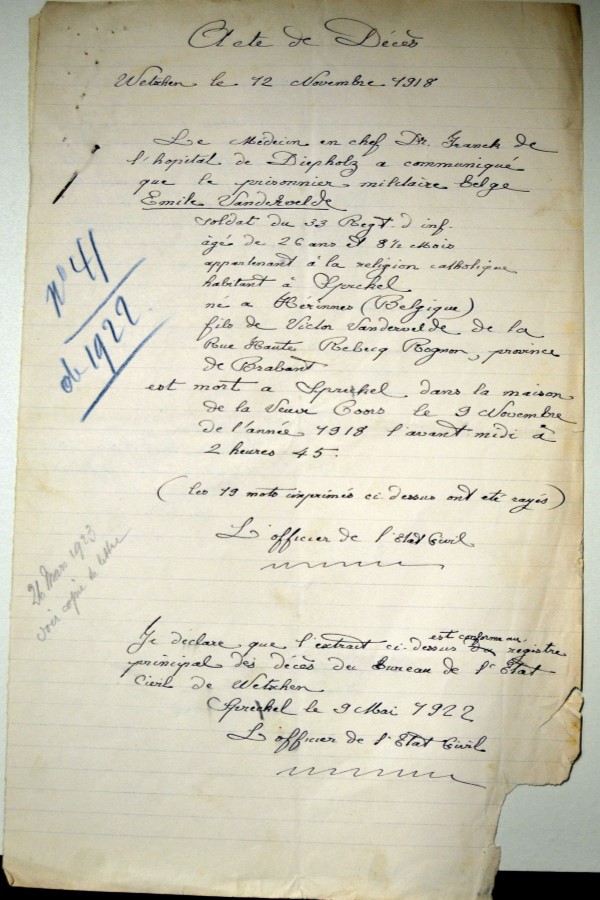 Acte de Décès
Wetschen le 12 Novembre 1918
Le Médecin en chef Dr. Franck de
l'hopital de Diepholz a communiqué
que le prisonnier militaire belge
Emile Vandervelde
soldat du 33 Regt. d inf.
âgé de 26 ans et 8½ Mois
appartenant à la religion catholique
habitant à Spreckel
né a Hérinnes (Belgique)
fils de Victor Vandervelde de la
Rue Haute Rebecq Rognon, province
de Brabant
est mort a Spreckel dans la maison
de la Veuve Coors le 9 Novembre
de l'année 1918 l'avant midi à
2 heures 45.
(les 19 mots imprimés ci-dessus ont été rayés)
L'officier de l'Etat Civil
N° 41
de 1922
26 Mars 1923
voir copie de lettre
Je declare que l'extrait ci-dessus est conforme au du registre
principal des décès du Bureau de l'Etat
Civil de Wetschen
Spreckel le 9 Mai 1922
L'officier de l'Etat Civil